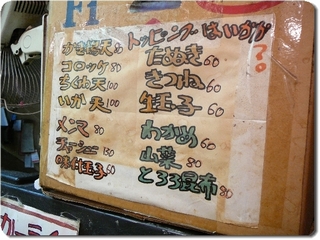 F1
トッピングはいかが
??
かき揚天80
コロッケ80
ちくわ天100
いか天100
メンマ80
チャーシュー150
味付玉子80
たぬき60
きつね60
生玉子60
わかめ60
山菜80
とろろ昆布80
カレーライ